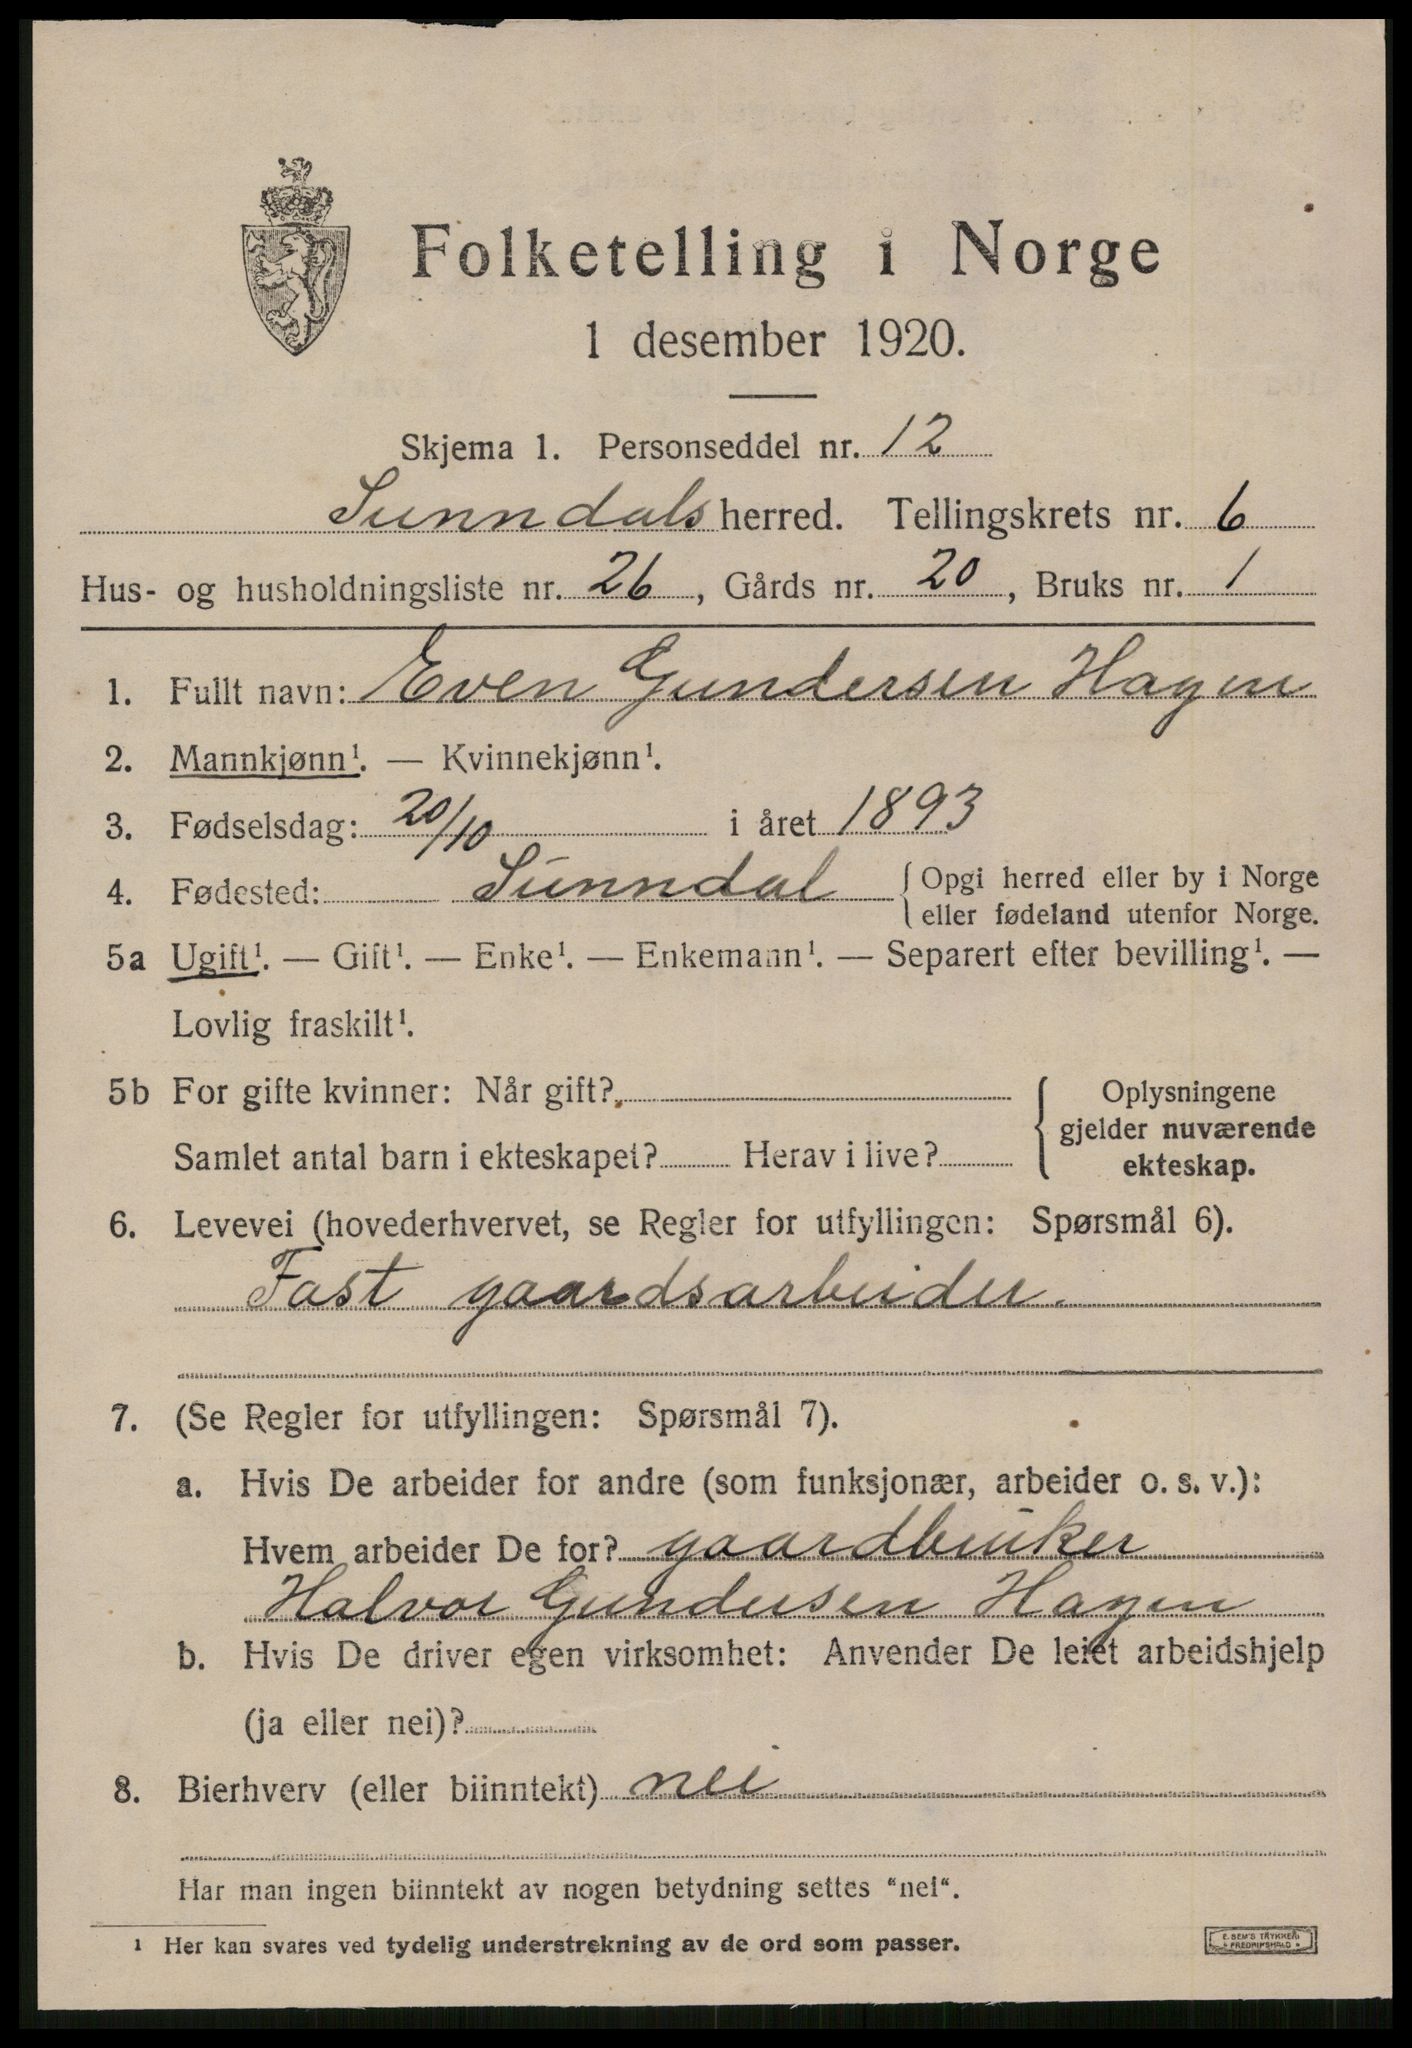 Folketelling i Norge
1 desember 1920.
Skjema 1. Personseddel nr. 12
Sunndals herred. Tellingskrets nr. 6
Hus- og husholdningsliste nr. 26, Gårds nr. 20, Bruks nr. 1
1. Fullt navn: Even Gundersen Hagen
2. Mannkjønn¹. — Kvinnekjønn¹.
3. Fødselsdag: 20/10 i året 1893
4. Fødested: Sunndal { Opgi herred eller by i Norge
eller fødeland utenfor Norge.
5a Ugift¹. — Gift¹. — Enke¹. — Enkemann¹. — Separert efter bevilling¹. —
Lovlig fraskilt¹.
5b For gifte kvinner: Når gift? { Oplysningene
gjelder nuværende
Samlet antal barn i ekteskapet? Herav i live? ekteskap.
6. Levevei (hovederhvervet, se Regler for utfyllingen: Spørsmål 6).
Fast gaardsarbeider.
7. (Se Regler for utfyllingen: Spørsmål 7).
a. Hvis De arbeider for andre (som funksjonær, arbeider o. s. v.):
Hvem arbeider De for? gaardbruker
Halvor Gundersen Hagen
b. Hvis De driver egen virksomhet: Anvender De leiet arbeidshjelp
(ja eller nei)?
8. Bierhverv (eller biinntekt) nei
Har man ingen biinntekt av nogen betydning settes "nei".
¹ Her kan svares ved tydelig understrekning av de ord som passer.
E. SEM'S TRYKKERI
FREDRIKSHALD